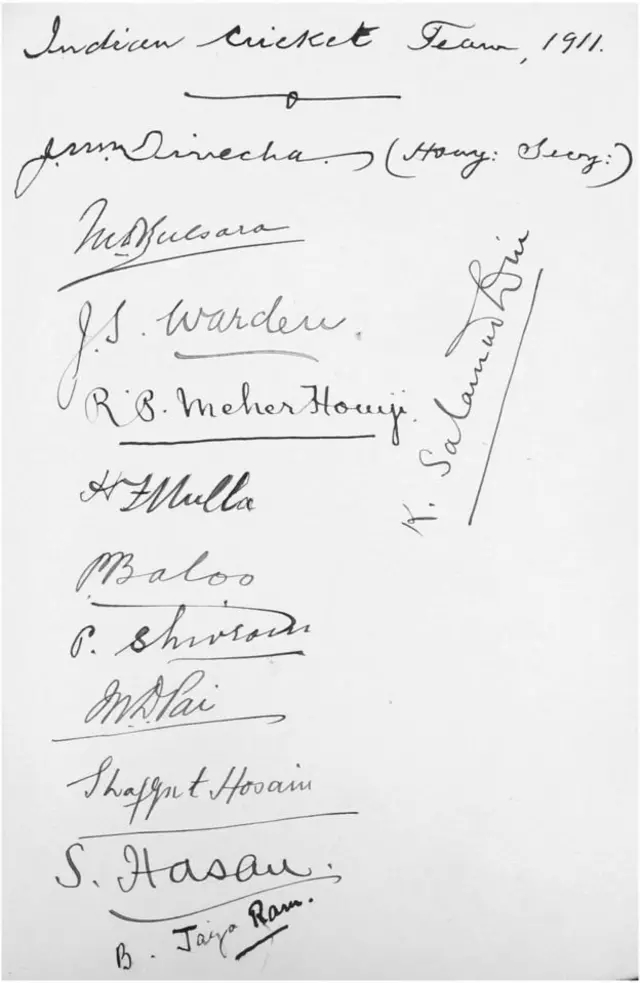 Indian Cricket Team, 1911.
J.M. Divecha (Hony: Secy:)
M.D. Bulsara
J.S. Warden.
R.P. Meher Homji.
K. Salamuddin
H F Mulla
P. Baloo
P. Shivram
M.D. Pai
Shafqat Hosain
S. Hasan.
B. Jaya Ram.